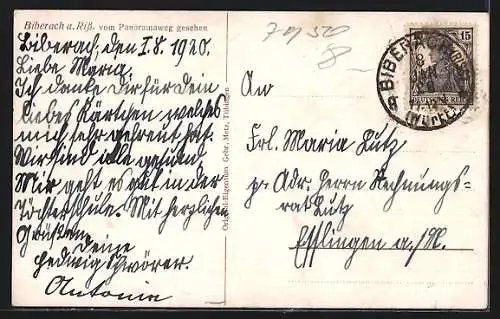 Biberach a. Riß. vom Panoramaweg gesehen
Biberach, den I.8. 1920.
Liebe Maria
Ich danke Dir für dein
liebes Kärtchen welches
mich sehr gefreut hat.
Wir sind alle gesund
Mir geht es gut in der
Töchterschule. Mit herzlichen
Grüßen
Deine
Hedwig Schwörer.
Antonie
Original-Eigentum Gebr. Metz, Tübingen
15
DEUTSCHES REICH
BIBERACH
An
Frl. Maria Lutz
p. Adr. Herrn Rechnungs=
rat Lutz
Esslingen a./N.
8-